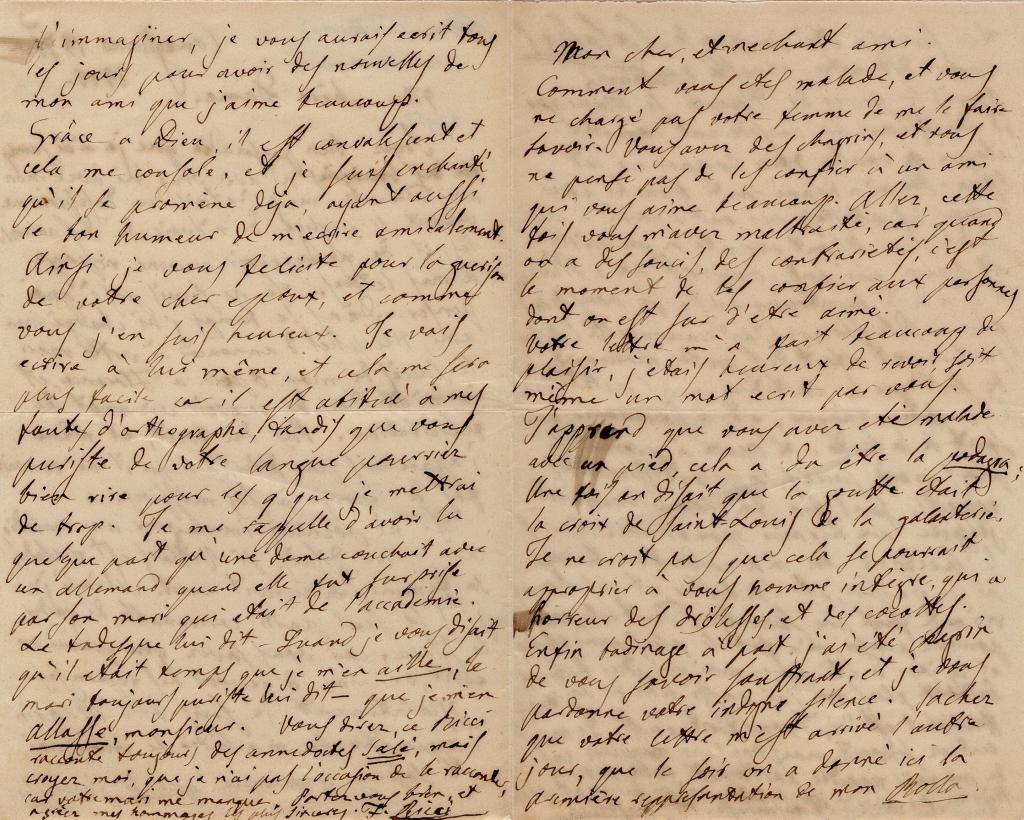 l'immaginer, je vous aurais ecrit tous
les jours pour avoir des nouvelles de
mon ami que j'aime beaucoup.
Grâce a Dieu, il est convalescent et
cela me console, et je suis enchanté
qu'il se promène déja, ayant aussi
le bon humeur de m'ecrire amicalement.
Ainsi je vous felicite pour la guerison
de votre cher epoux, et comme
vous j'en suis heureux. Je vais
ecrire à lui même, et cela me sera
plus facile car il est abitué à mes
fautes d'orthographe, tandis que vous
puriste de votre langue pourriez
bien rire pour les q que je mettrai
de trop. Je me rappelle d'avoir lu
quelque part qu'une dame couchait avec
un allemand quand elle fut surprise
par son mari qui etait de l'accademie.
Le tudesque lui dit - Quand je vous disait
qu'il etait temps que je m'en aille, le
mari toujours puriste lui dit - que je m'en
allasse, monsieur. Vous direz, ce Ricci
raconte toujours des annedoctes sale, mais
croyez moi, que je n'ai pas l'occasion de le raconter,
car votre mari me manque. Portez vous bien, et
agréer mes hommages les plus sinceres. F. Ricci
Mon cher, et mechant ami.
Comment vous etes malade, et vous
ne chargé pas votre femme de me le faire
savoir. Vous avez des chagrins, et vous
ne pensé pas de les confier à un ami
qui vous aime beaucoup. Allez, cette
fois vous m'avez maltraité, car quand
on a des soucis, des contrarietés, c'est
le moment de les confier aux personnes
dont on est sur d'etre aimé.
Votre lettre m'a fait beaucoup de
plaisir, j'etais heureux de revoir soit
même un mot ecrit par vous.
J'apprend que vous avez eté malade
avec un pied, cela a du être la podagra;
Une fois on disait que la goutte etait
la croix de Saint-Louis de la galanterie.
Je ne croit pas que cela se pourrait
approprier à vous homme intègre, qui a
horreur des drôlesses, et des cocottes.
Enfin badinage à part, j'ai été chagrin
de vous savoir souffrant, et je vous
pardonne votre indigne silence. Sachez
que votre lettre m'est arrivé l'autre
jour, que le soir on a donné ici la
première representation de mon